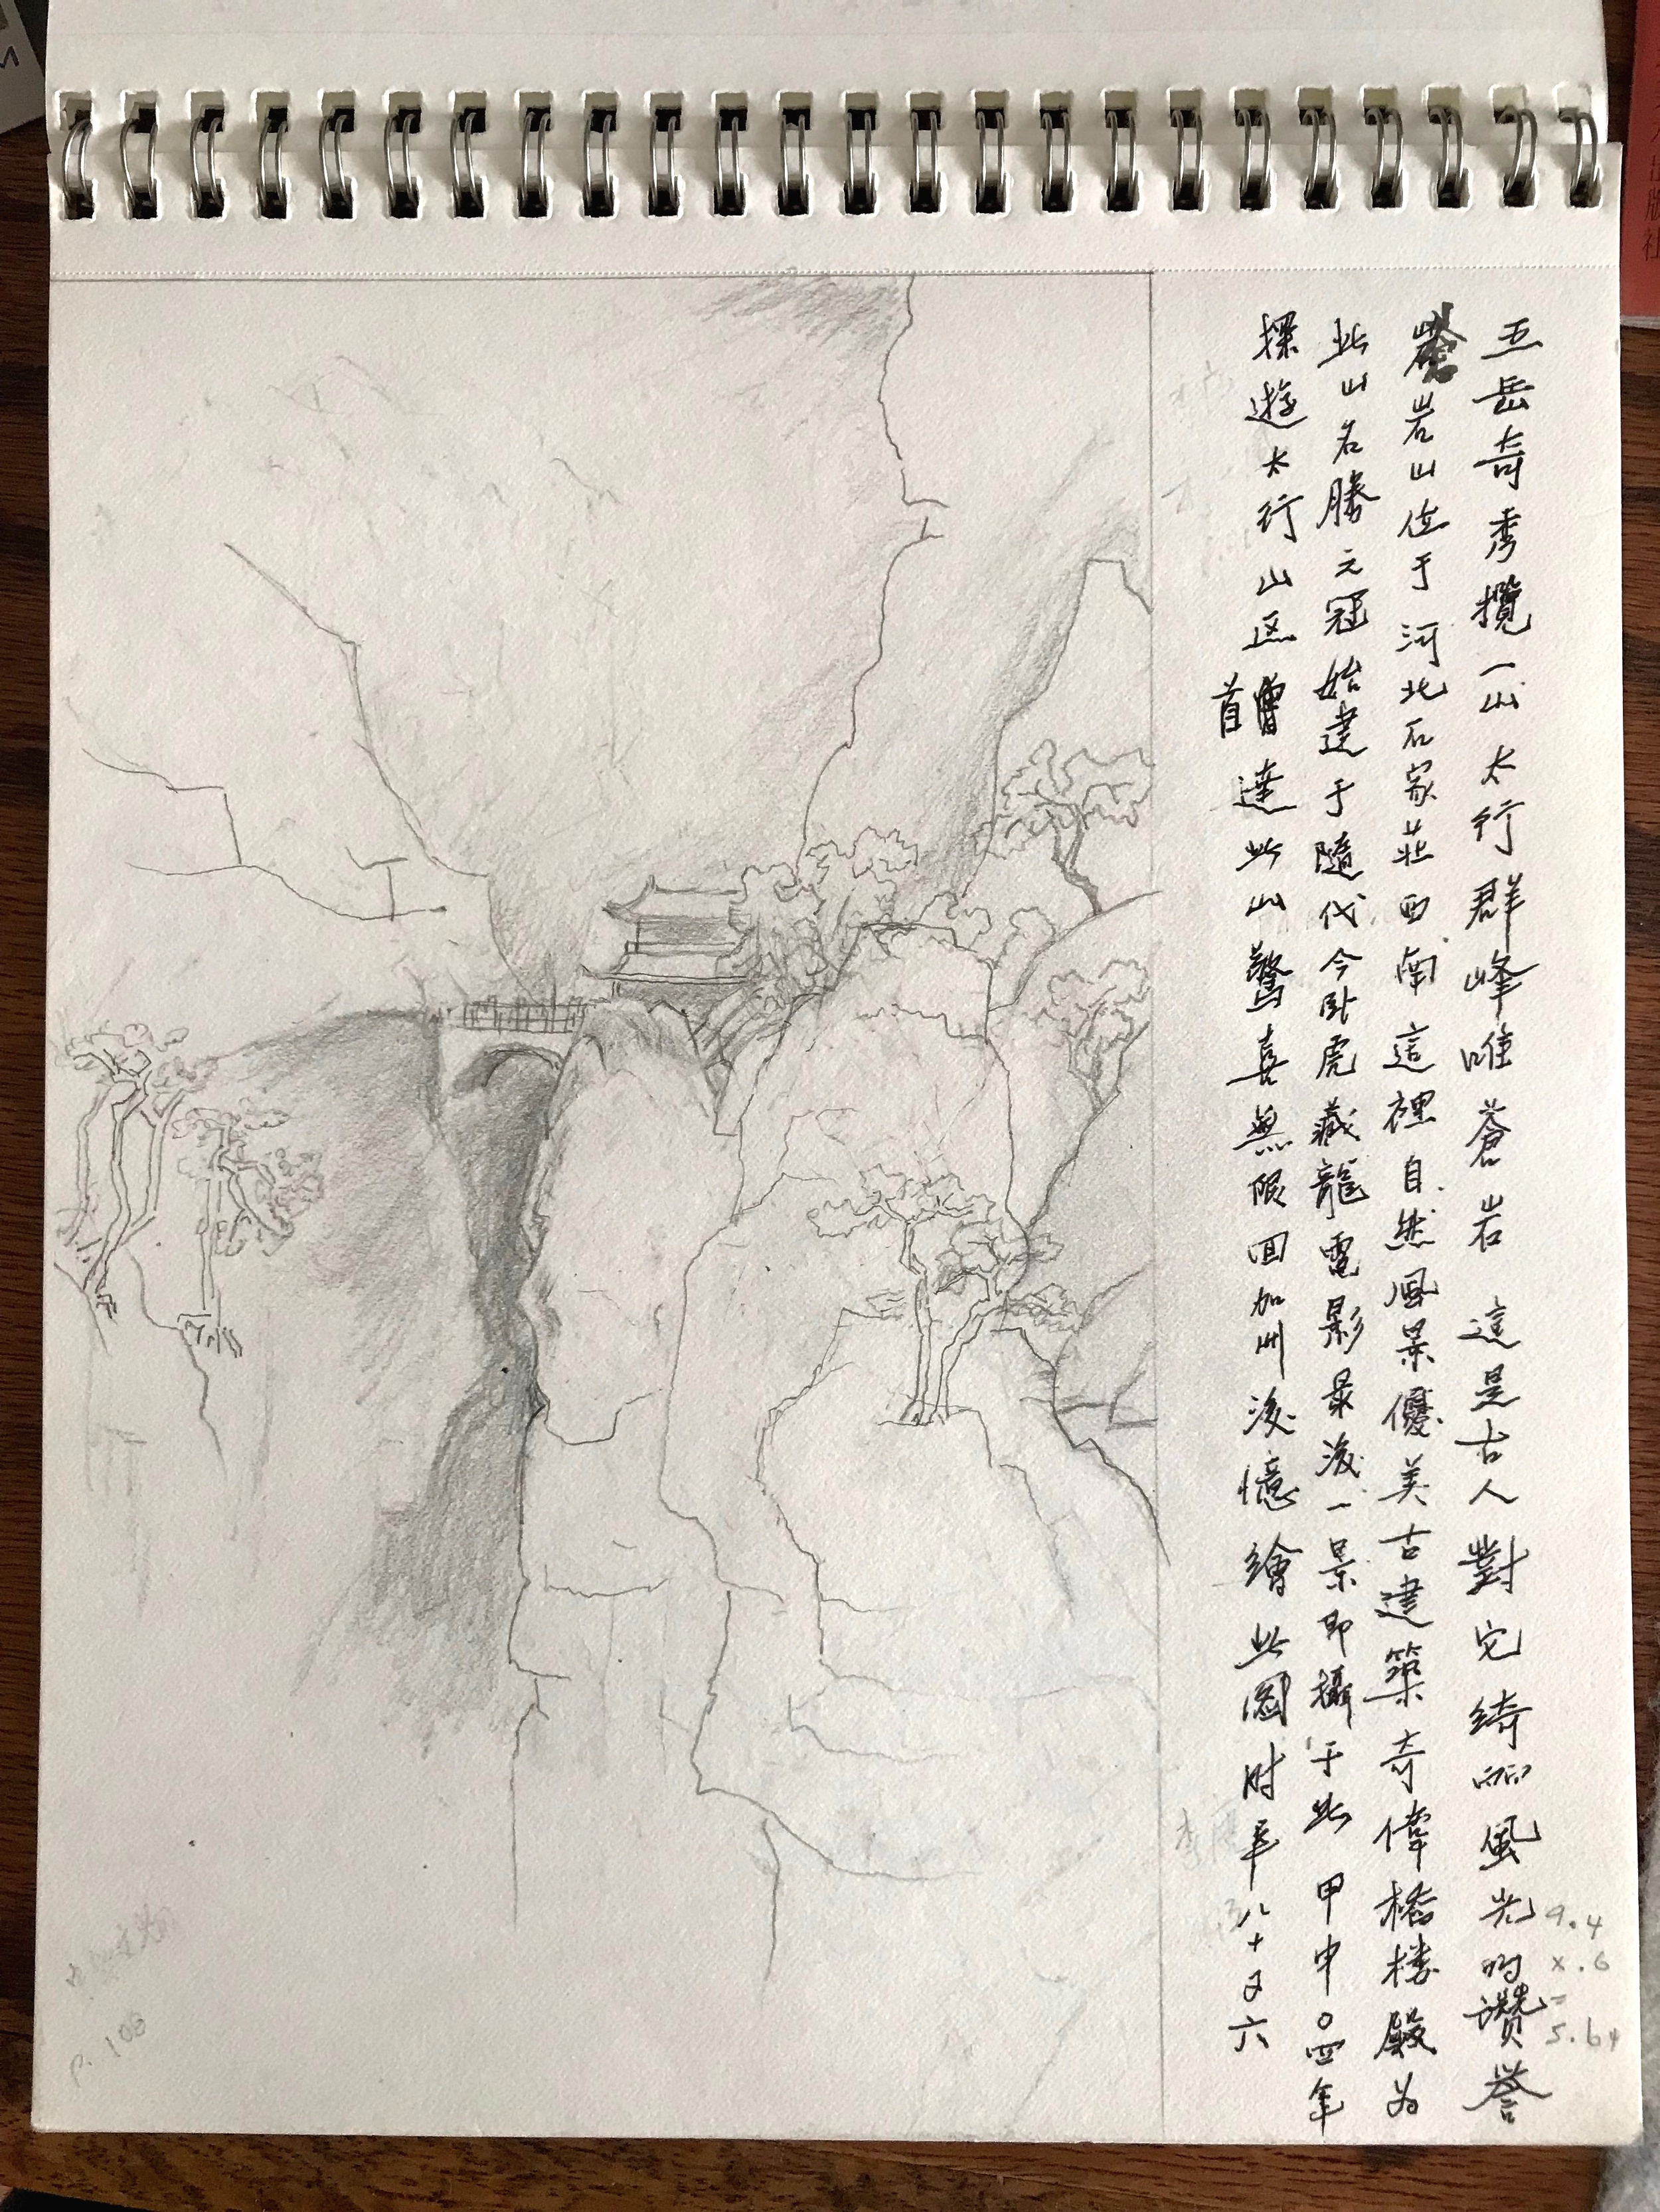 五岳奇秀攬一山太行群峰唯蒼岩這是古人對它綺麗風光的讚誉
蒼岩山位于河北石家莊西南這裡自然風景優美古建築奇偉橋楼殿为
此山名勝元冠始建于隨代今卧虎藏龍電影最後一景即攝于此甲申〇四年
探遊太行山区首達此山驚喜無限回加州後憶繪此圖时年八十又六
9.4
x .6
=
5.64
P. 108
出版社